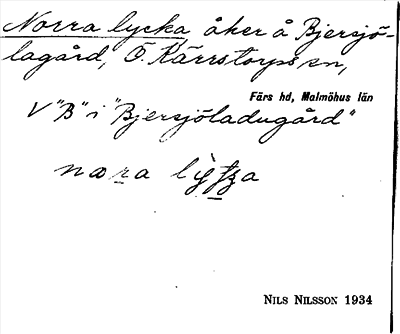 Norra lycka, åker å Bjersjö-
lagård, Ö. Kärrstorps sn,
Färs hd, Malmöhus län
V "B" i "Bjersjöladugård"
nora
Nils Nilsson 1934